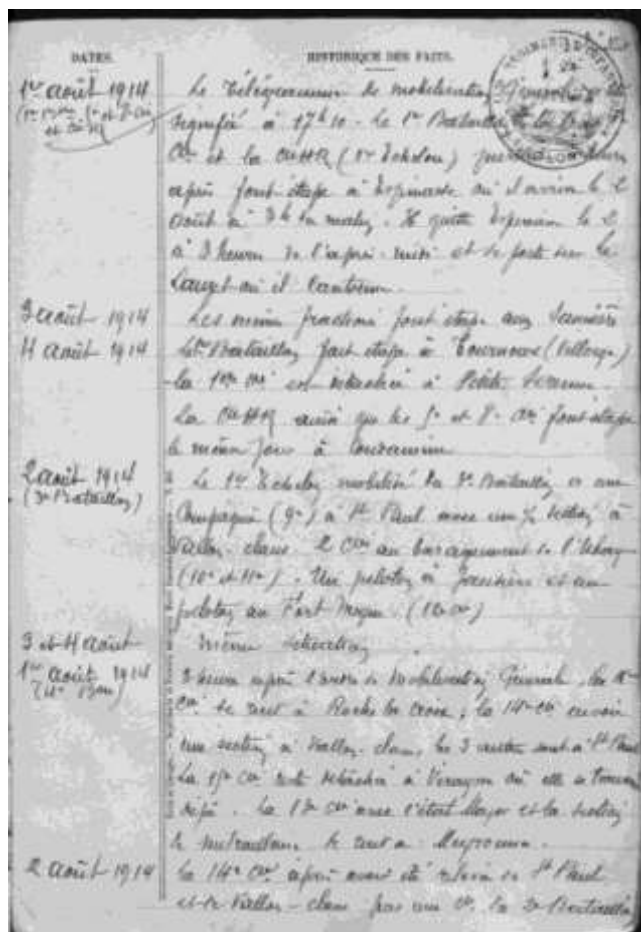 DATES.
HISTORIQUE DES FAITS.
1er août 1914
Le Télégramme de mobilisation Générale
signifié à 17h10. Le 1er Bataillon
Cie et la CHR (1er Echelon)
après font étape à Espinasse où il arrive le 2
août à 3h du matin. Il quitte Espinasse le 2
à 3 heures de l'après-midi et se porte sur le
Lauzet où il cantonne.
3 août 1914
Les même fractions font étape aux Sanières
4 août 1914
Le 1er Bataillon fait étape à Tournoux (Village)
la 1ère Cie est détachée à Petite Serenne
La CHR ainsi que les 5e et 8e Cies font étape
le même jour à Condamine
2 août 1914
(3e Bataillon)
Le 1er Echelon mobilisé du 3e Bataillon a une
Compagnie (9e) à St Paul avec une 1/2 section à
Vallon-claus 2 Cies au baraquement de
(10e et 11e). Un peloton à Jausiers et un
peloton au Fort Moyen (12e Cie)
3 et 4 août
même situation
1er août 1914
(4e Bon)
3 heures après l'ordre de Mobilisation Générale, la
Cie se rend à Roche la Croix, la 14e Cie envoie
une section à Vallon-claus, les 3 autres sont à St Paul
La 15e Cie est détachée à Viraysse où elle se trouve
déjà. La 13e Cie avec l'état Major et la section
de mitrailleuse se rend à Meyronnes.
2 août 1914
la 14e Cie après avoir été relevée de St Paul
et de Vallon-claus par une Cie du 3e Bataillon